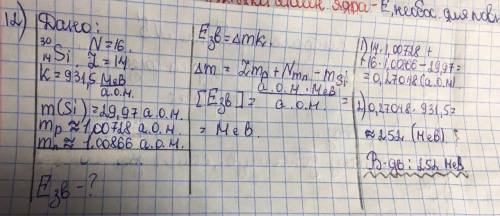 ядра - E, необх. для
12) Дано:
³⁰₁₄Si N=16.
Z=14
k=931,5 МеВ/а.о.м.
m(Si)=29,97 а.о.м.
mp≈1.00728 а.о.м.
mn≈1.00866 а.о.м.
Eзв-?
Eзв=Δmk.
Δm=Zmp+Nmn-mSi
[Eзв]= а.о.м.·МеВ/а.о.м. =
= МеВ.
1) 14·1,00728+
+16·1,00866-29,97=
=0,27048 (а.о.м.)
2) 0,27048·931,5=
≈252 (МеВ)
В-дь: 252 МеВ